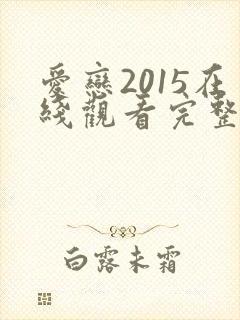 愛戀2015在
綫觀看完整
白露未霜